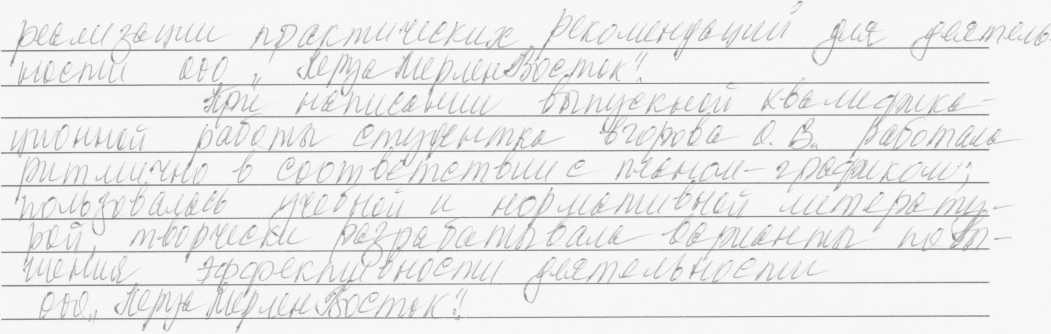 реализации практических рекомендаций для деятель-
ности ооо „Леруа Мерлен Восток".
При написании выпускной квалифика-
ционной работы студентка Егорова О. В. работала
ритмично в соответствии с планом-графиком;
пользовалась учебной и нормативной литерату-
рой, творчески разрабатывала варианты повы-
шения эффективности деятельности
ооо „Леруа Мерлен Восток".